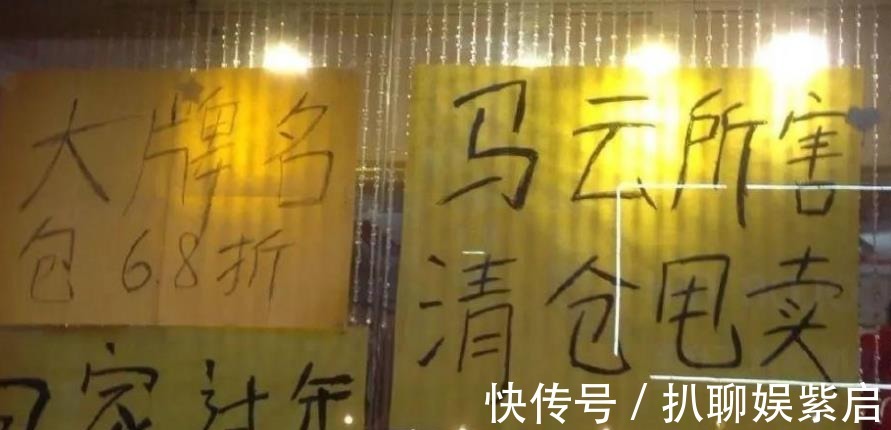 大牌名
包 6.8折
马云所害
清仓甩卖
回家过年
快传号 / 扒聊娱紫启